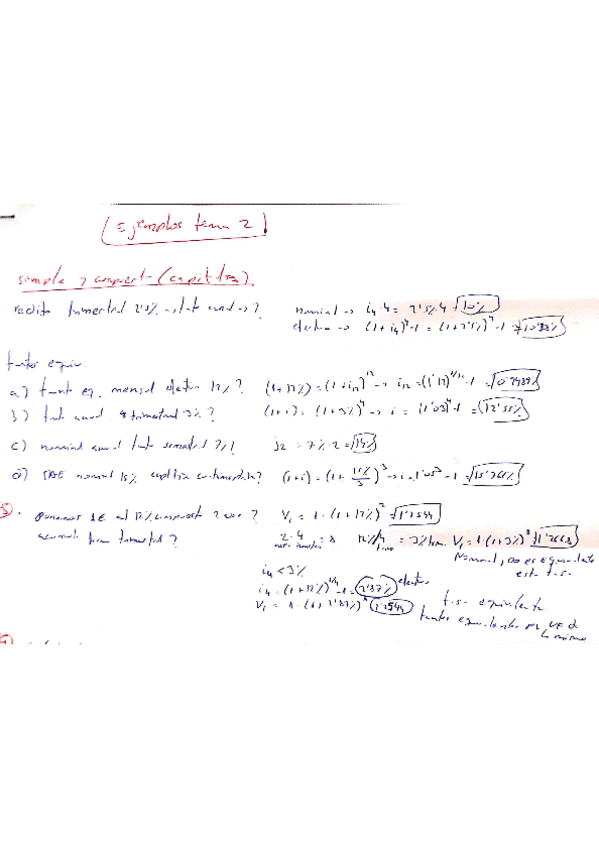 Ejemplos tema 2
simple y compuesta (capitaliz).
rédito trimestral 2'5% → tanto anual → ? nominal → i₄·4 = 2'5%·4 = 10%
efectivo → (1+i₄)⁴-1 = (1+2'5%)⁴-1 =
tantos equiv.
a) tanto eq. mensual efectivo 12%? (1+12%) = (1+i₁₂)¹² → i₁₂ = (1'12)^1/12 -1 = 0'9489%
b) tanto anual trimestral 3%? (1+i) = (1+3%)⁴ → i = (1'03)⁴-1 = 12'55%
c) nominal anual tanto semestral 7%? j₂ = 7%·2 = 14%
d) TAE nominal 15% cuatrimestral? (1+i) = (1+15%/3)³ → i = 1'05³-1 = 15'76%
3. Ponemos 1€ al 12% compuesto 2 años? V₁ = 1·(1+12%)² = 1'2544
trimestral? 2·4 = 8 12%/4 = 3% trim. V₁ = 1·(1+3%)⁸ = 1'2668
Nominal, no es equivalente
este t.s.
i₄ < 3%
i₄ = (1+12%)^1/4 -1 = 2'87% efectivo
V₁ = 1·(1+2'87%)⁸ = 1'2544 t.s. equivalente
tantos equivalentes VF
mismo